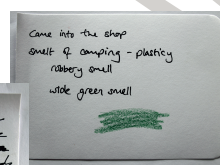 Came into the shop
smelt of camping - plasticy
rubbery smell
wide green smell